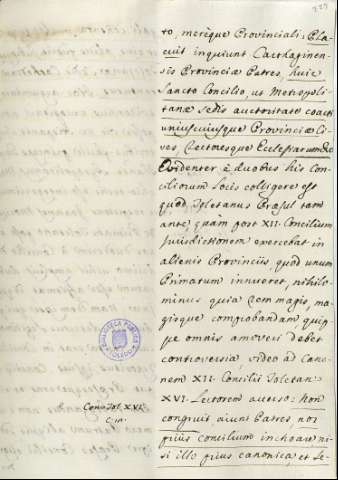 to, merèque Provinciali; Pla-
cuit inquiunt Carthaginen-
sis Provinciæ Patres, huic
Sancto Concilio, ut Metropoli-
tanæ sedis auctoritate coacti
uniuscuiusque Provinciæ Ci-
ves, Rectoresque Ecclesiarum
Evidenter à duobus his Con-
ciliorum locis colligere est
quod Toletanus Præsul tam
ante, quàm post XII. Concilium
Jurisdictionem exercebat in
alienis Provinciis, quod unum
Primatum innueret, nihilo-
minus quia rem magis, ma-
gisque comprobandam quip-
pe omnis amoveri debet
controversia, video ad Cano-
nem XII. Concilii Toletan.
XVI. Lectorem averso: non
congruit aiunt Patres, nos
prius concilium inchoare ni-
si illo prius canonicæ, et Le-
Conc. Tol. XVI.
BIBLIOTECA PUBLICA
TOLEDO